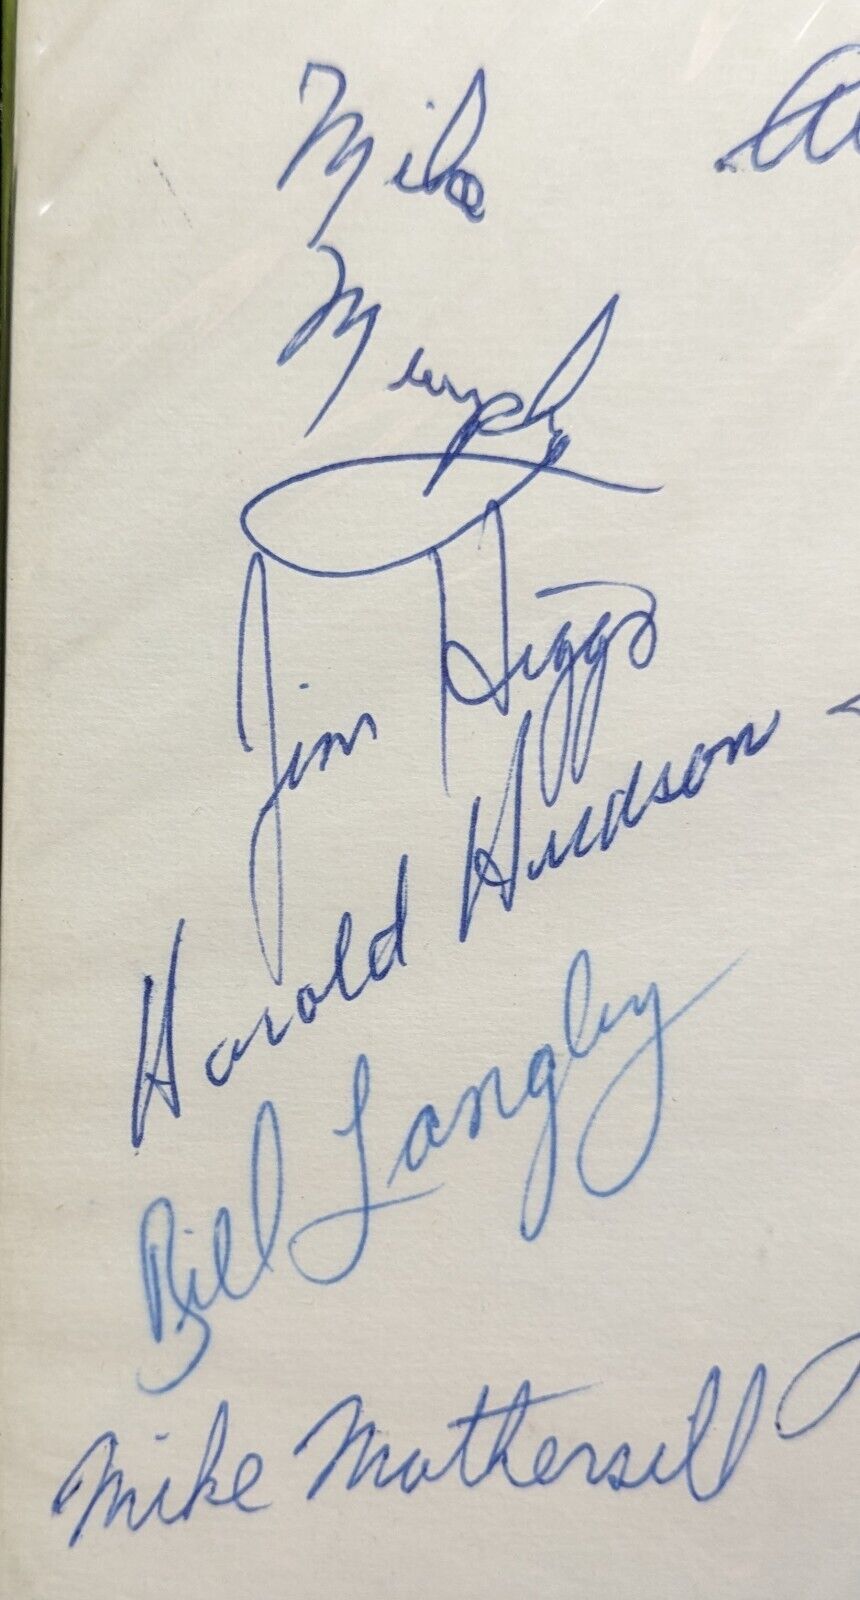 Mike
Murphy
Jim Higgs
Harold Hudson
Bill Langley
Mike Mothersill